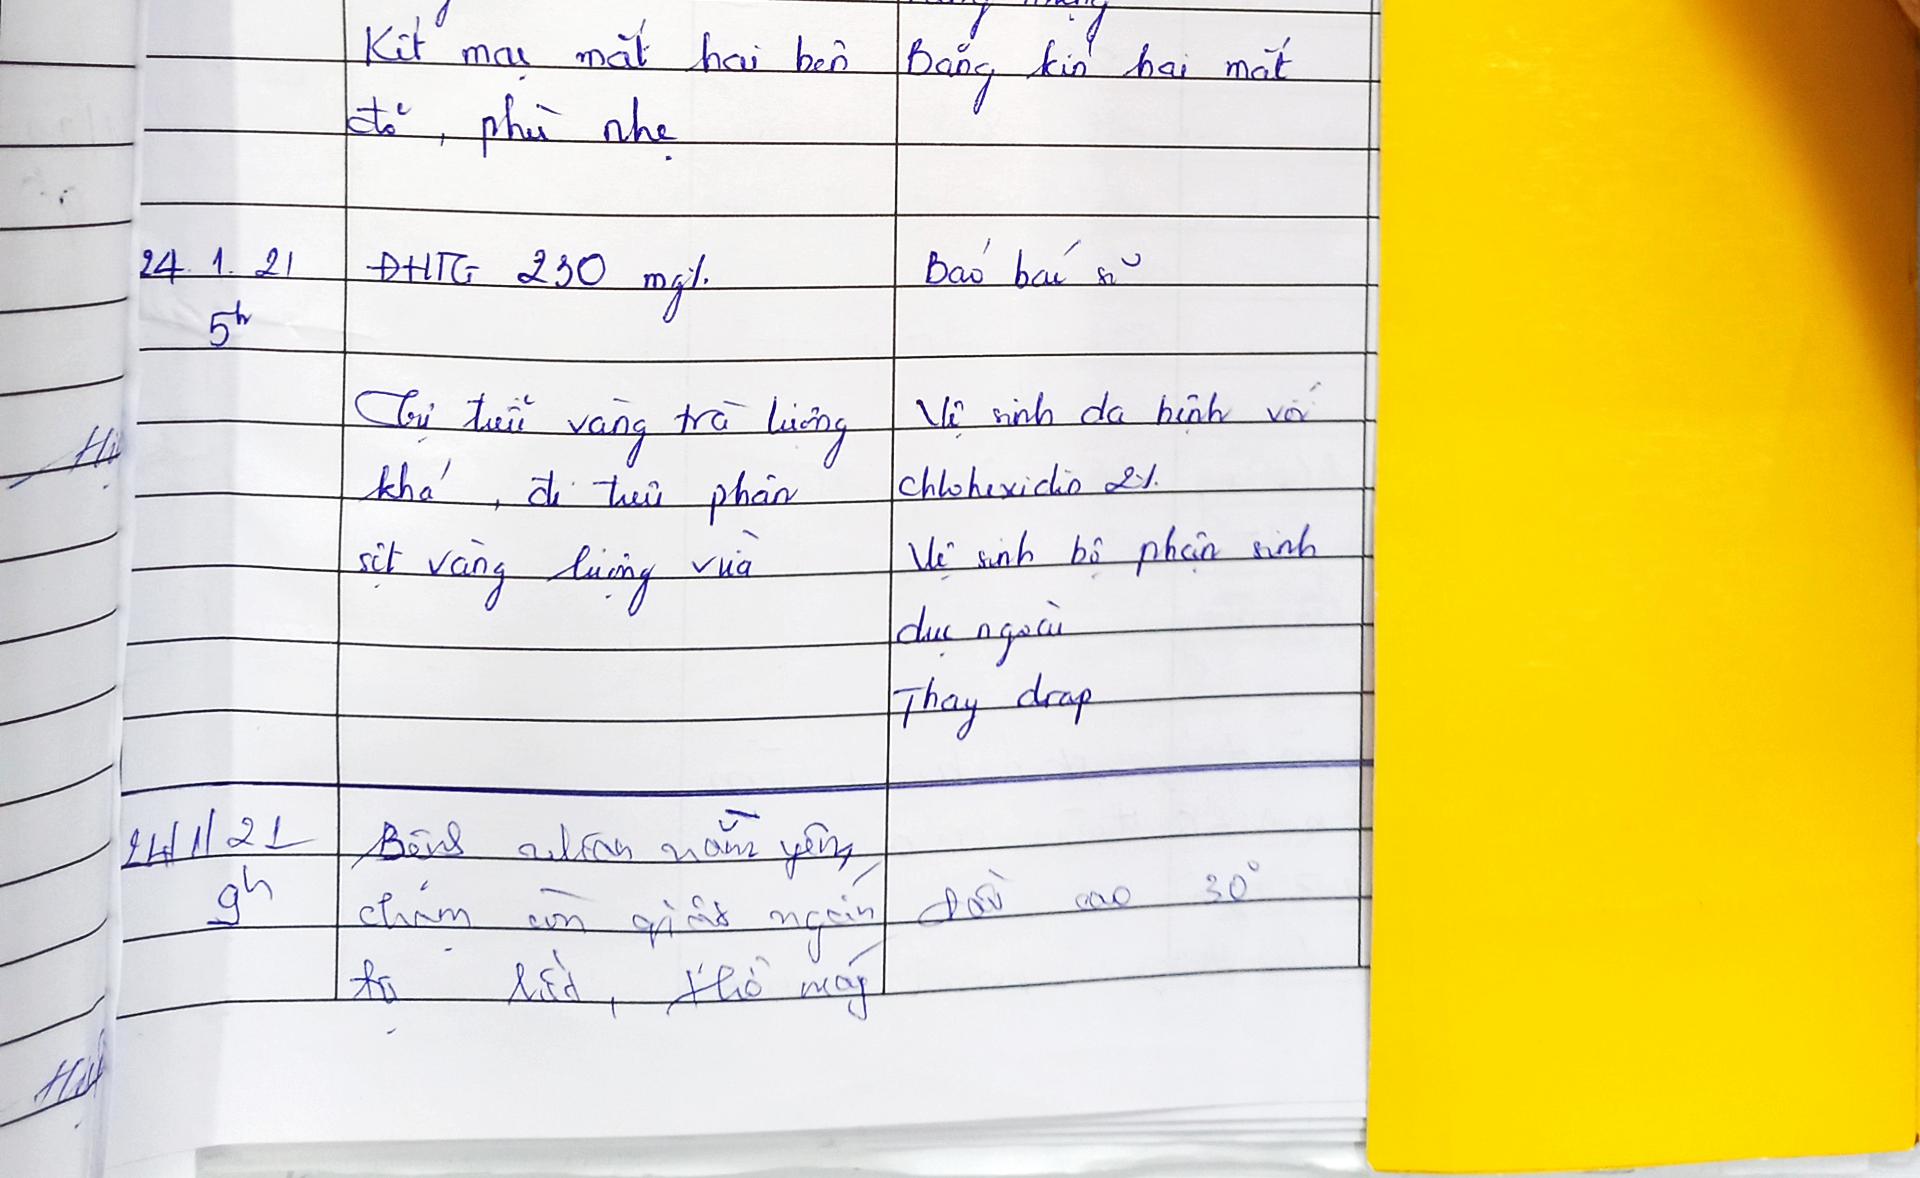 Kết mạc mắt hai bên
đỏ, phù nhẹ
Băng kín hai mắt
24.1.21
5h
ĐHTG 230 mg%
Báo bác sĩ
tiểu vàng trà lượng
khá, đi tiêu phân
sệt vàng lượng vừa
Vệ sinh da bệnh với
chlohexidin 2%
Vệ sinh bộ phận sinh
dục ngoài
Thay drap
24/1/21
9h
Bệnh nhân nằm yên,
thỉnh còn giật ngón
thở máy
đầu cao 30°